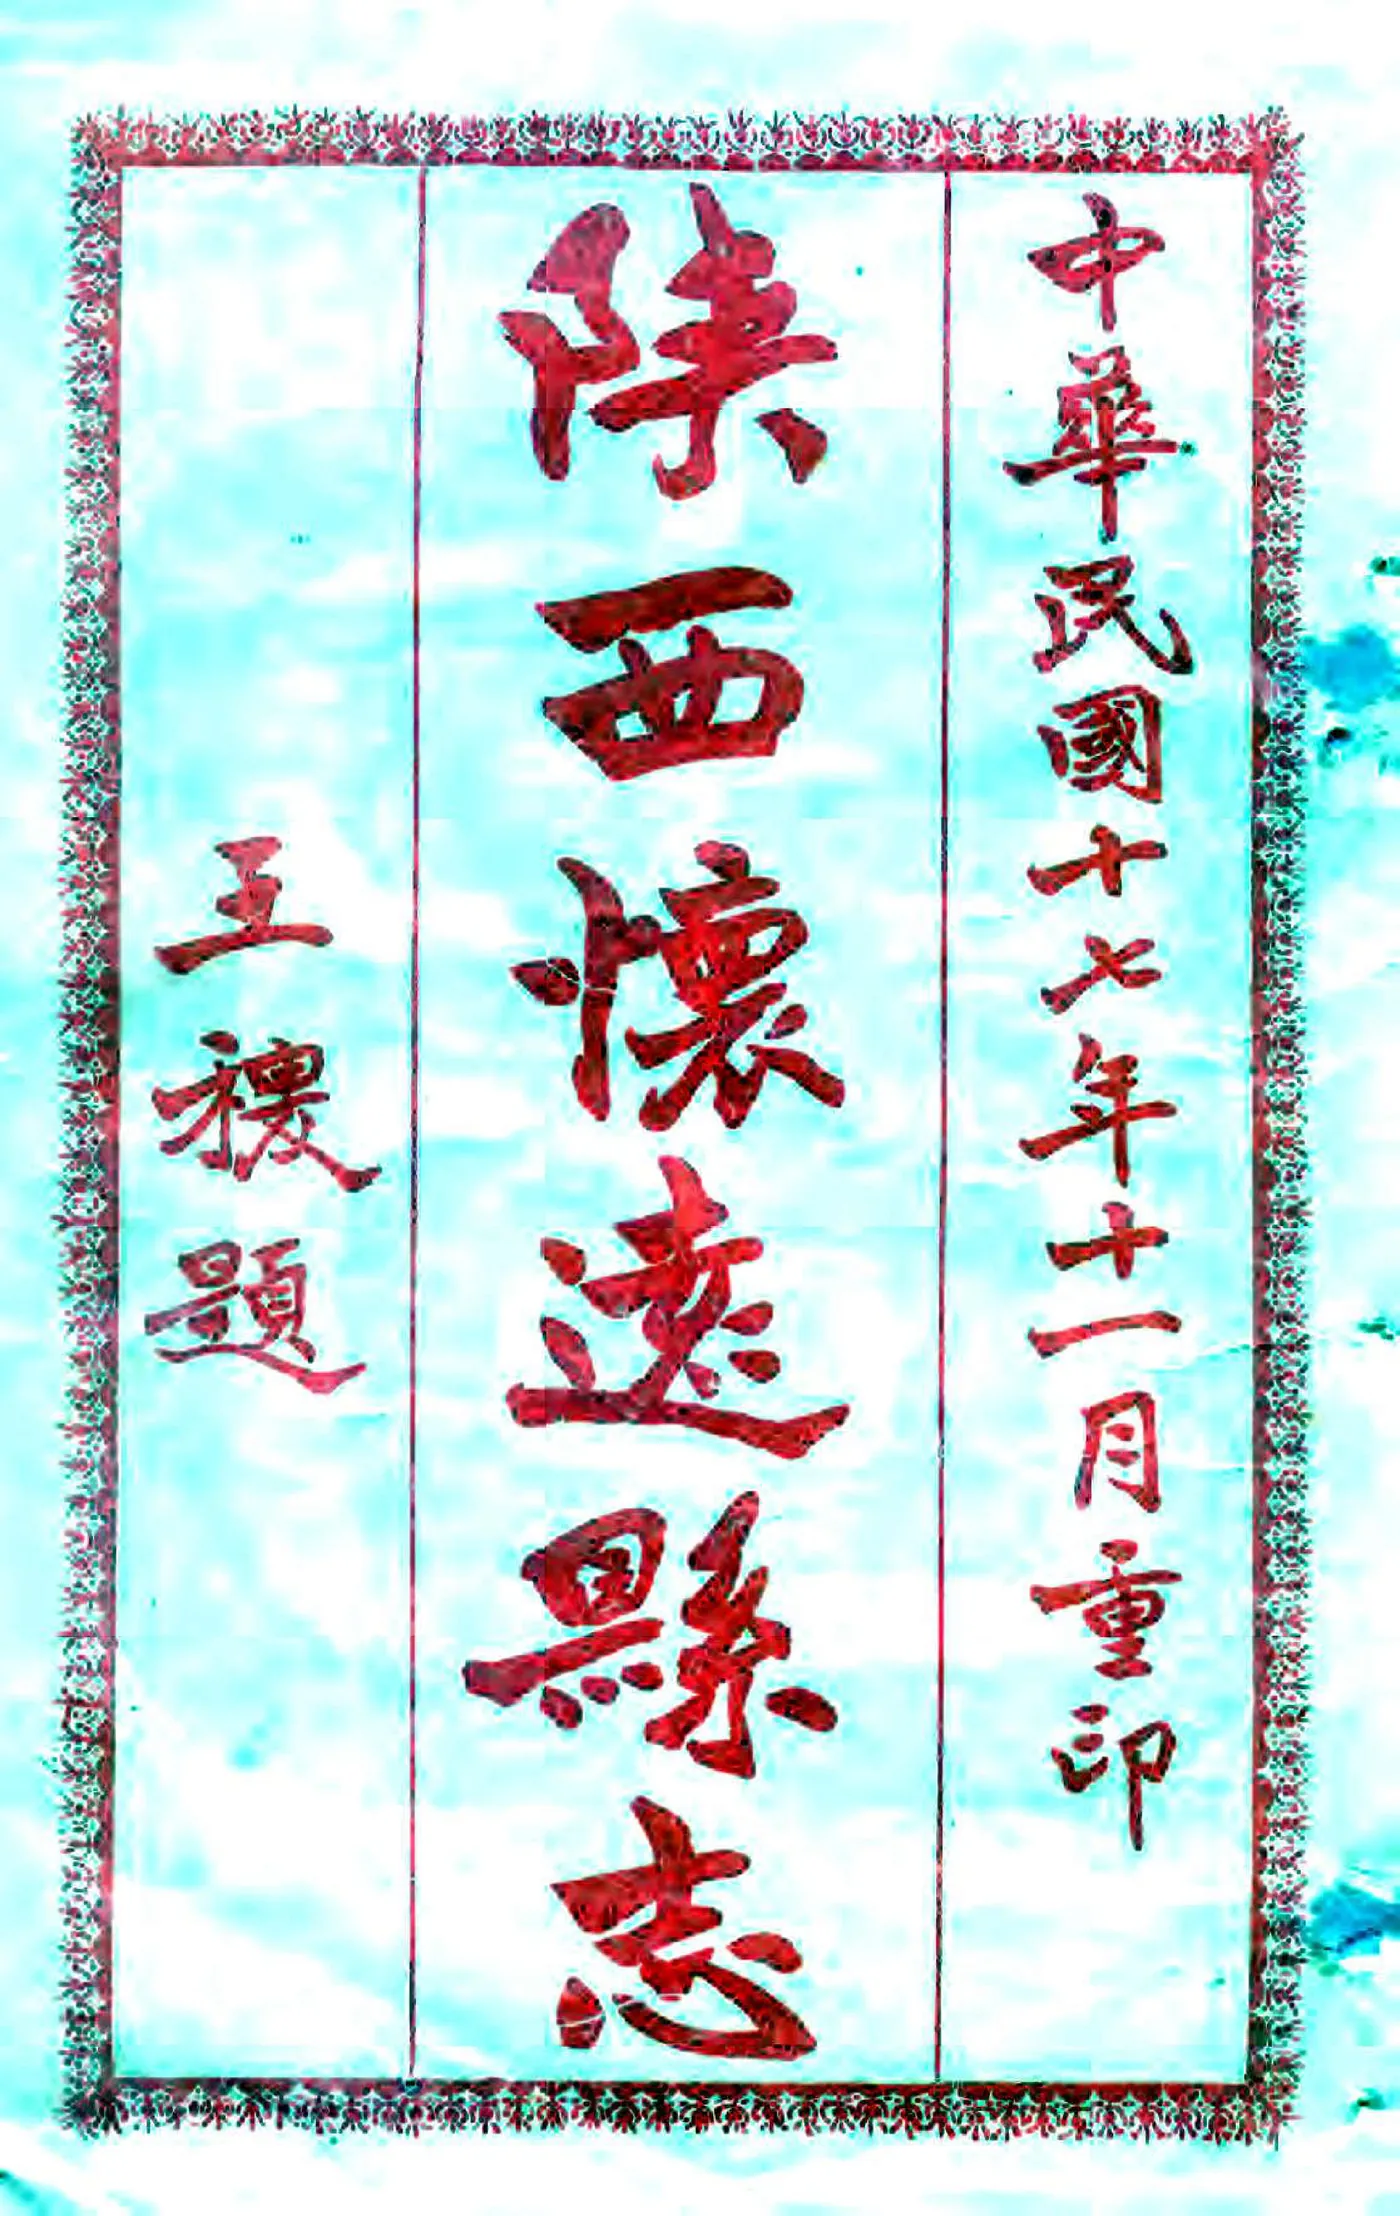 中華民國十七年十一月重印
陝西懷遠縣志
王穰題